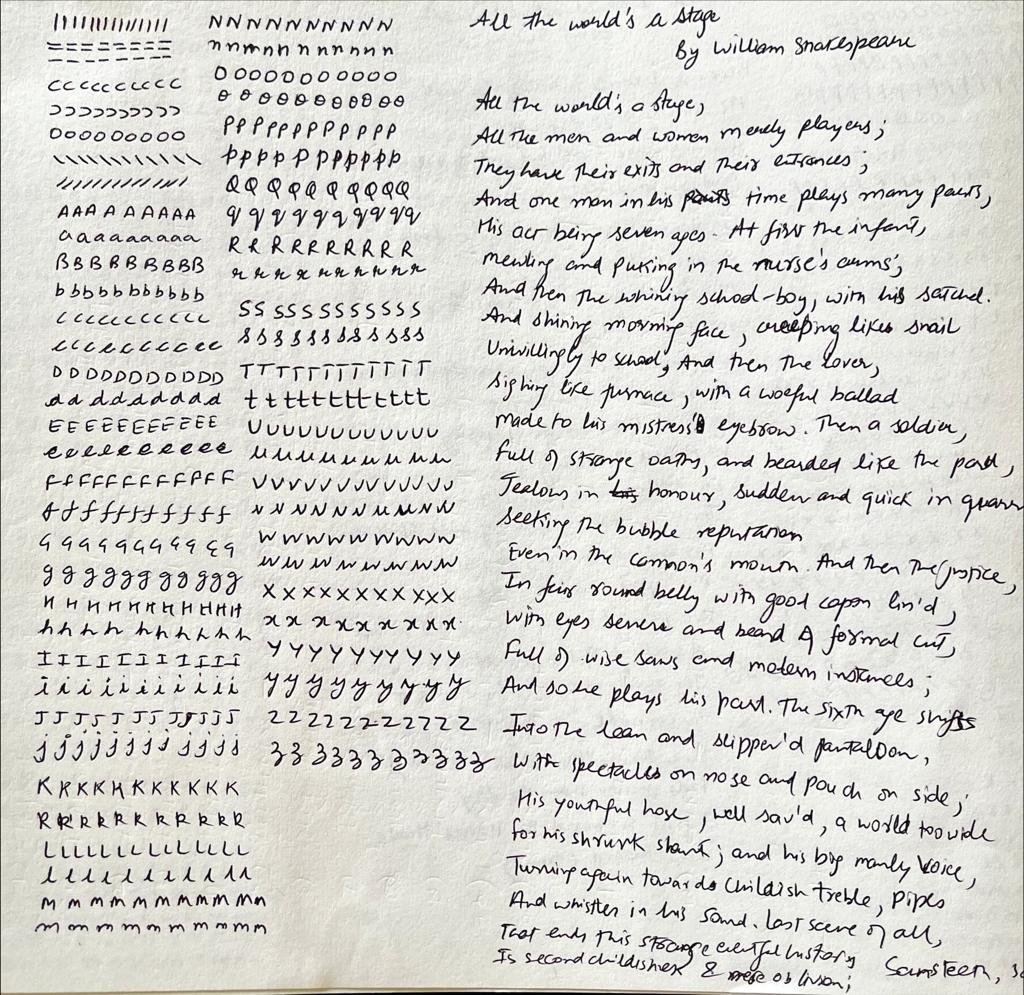 ||||||||||||||
= = = = = = = =
C C C C C C C C C
Ɔ Ɔ Ɔ Ɔ Ɔ Ɔ Ɔ Ɔ Ɔ
O O O O O O O O O
\ \ \ \ \ \ \ \ \ \ \
/ / / / / / / / / / / /
A A A A A A A A A
a a a a a a a a a
B B B B B B B B B
b b b b b b b b b b
c c c c c c c c c c
c c c c c c c c c
D D D D D D D D D D
d d d d d d d d d
E E E E E E E E E
e e e e e e e e e e
F F F F F F F F F F
f f f f f f f f f
G G G G G G G G G
g g g g g g g g g g
H H H H H H H H H H
h h h h h h h h h
I I I I I I I I I
i i i i i i i i i
J J J J J J J J J J
j j j j j j j j j j
K K K K K K K K K K
k k k k k k k k k
L L L L L L L L L L
l l l l l l l l l
m m m m m m m m m m
m m m m m m m m m m
N N N N N N N N N N
n n n n n n n n n n
O O O O O O O O O O O
θ θ θ θ θ θ θ θ θ θ
P P P P P P P P P P
p p p p p p p p p p
Q Q Q Q Q Q Q Q Q
q q q q q q q q q q
R R R R R R R R R
r r r r r r r r r r
S S S S S S S S S S
s s s s s s s s s s
T T T T T T T T T T
t t t t t t t t t t
U U U U U U U U U U U
u u u u u u u u u
V V V V V V V V V V
v v v v v v v v v
W W W W W W W W W
w w w w w w w w w
X X X X X X X X X X
x x x x x x x x x
Y Y Y Y Y Y Y Y Y
y y y y y y y y y
Z Z Z Z Z Z Z Z Z Z
z z z z z z z z z z
All the world's a stage
By William Shakespeare
All the world's a stage,
All the men and women merely players;
They have their exits and their entrances;
And one man in his time plays many parts,
His act being seven ages. At first the infant,
mewling and puking in the nurse's arms;
And then the whining school-boy, with his satchel.
And shining morning face, creeping like snail
Unwillingly to school, And then the lover,
sighing like furnace, with a woeful ballad
made to his mistress' eyebrow. Then a soldier,
Full of strange oaths, and bearded like the pard,
Jealous in honour, sudden and quick in quarr
seeking the bubble reputation
Even in the cannon's mouth. And then the justice,
In fair round belly with good capon lin'd,
With eyes severe and beard of formal cut,
Full of wise saws and modern instances;
And so he plays his part. The sixth age shifts
Into the lean and slipper'd pantaloon,
With spectacles on nose and pouch on side;
His youthful hose, well sav'd, a world too wide
for his shrunk shank; and his big manly voice,
Turning again towards childish treble, pipes
And whistles in his sound. Last scene of all,
That ends this strange eventful history
Is second childishness & mere oblivion;